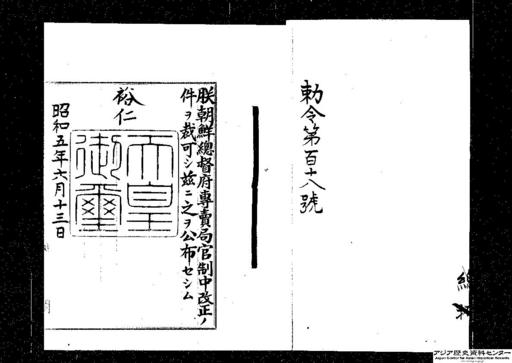 勅令第百十八號
朕朝鮮總督府專賣局官制中改正ノ
件ヲ裁可シ茲ニ之ヲ公布セシム
裕仁
天皇
御璽
昭和五年六月十三日
アジア歴史資料センター
Japan Center for Asian Historical Records